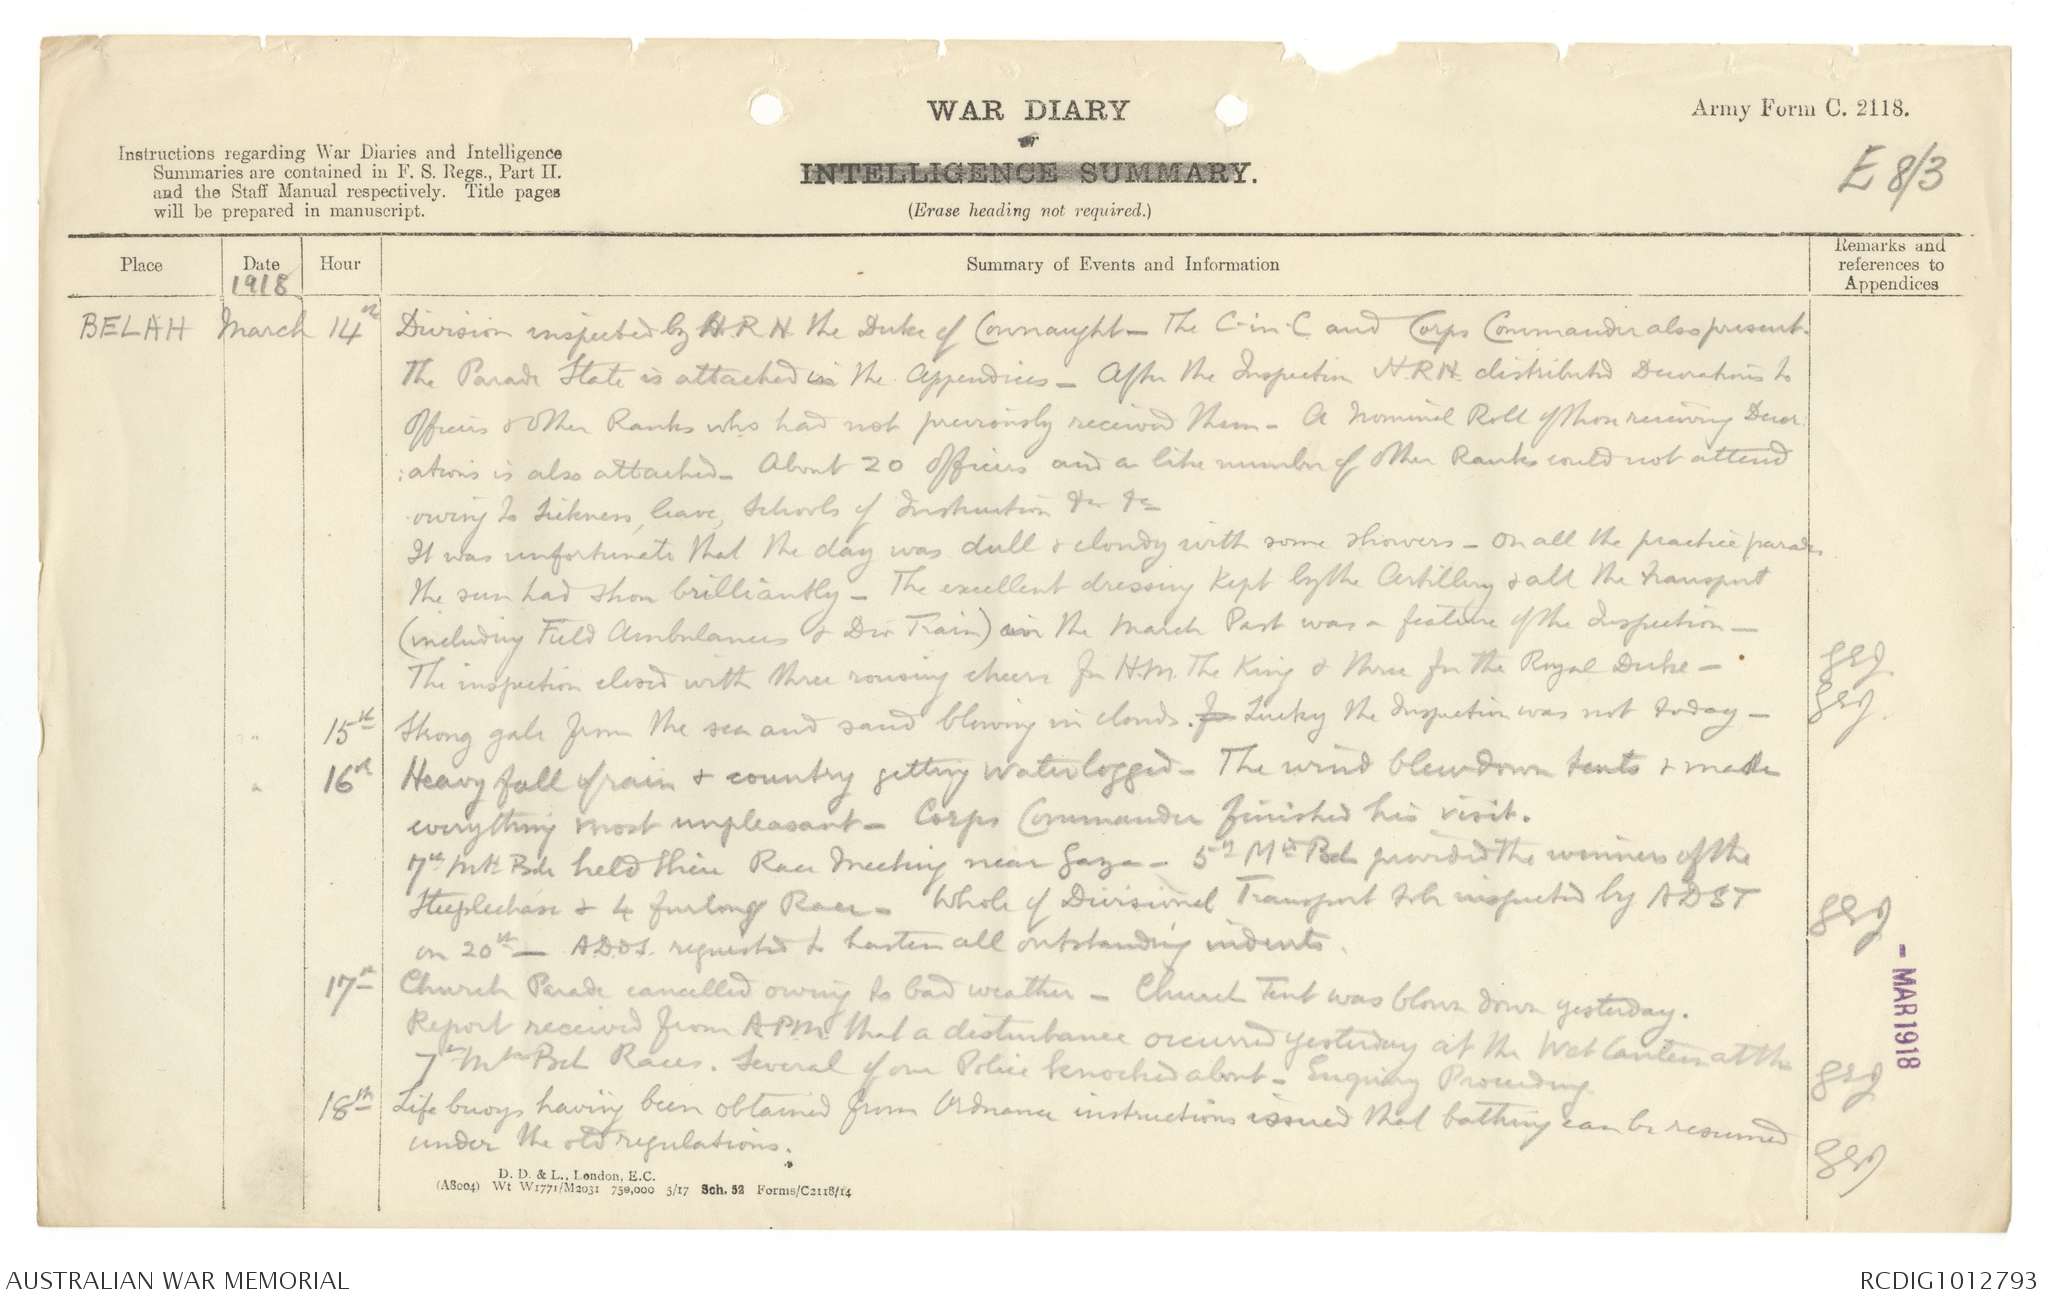 WAR DIARY
or
INTELLIGENCE SUMMARY.
(Erase heading not required.)
Army Form C. 2118.
E 8/3
Instructions regarding War Diaries and Intelligence
Summaries are contained in F. S. Regs., Part II.
and the Staff Manual respectively. Title pages
will be prepared in manuscript.
Place
Date
1918
Hour
Summary of Events and Information
Remarks and
references to
Appendices
BELAH March 14th Division inspected by H.R.H. the Duke of Connaught – The C-in-C and Corps Commander also present.
The Parade State is attached in the Appendices – After the Inspection H.R.H. distributed Decorations to
Officers & Other Ranks who had not previously received them – A Nominal Roll of those receiving Decor:
:ations is also attached – About 20 Officers and a like number of Other Ranks could not attend
owing to Sickness, leave, Schools of Instruction &c &c
It was unfortunate that the day was dull & cloudy with some showers – on all the practice parades
the sun had shone brilliantly – The excellent dressing kept by the Artillery & all the transport
(including Field Ambulances & Div Train) in the March Past was a feature of the Inspection –
The inspection closed with three rousing cheers for H.M. The King & three for the Royal Duke –
15th Strong gale from the sea and sand blowing in clouds. Lucky the Inspection was not today –
16th Heavy fall of rain & country getting waterlogged – The wind blew down tents & made
everything most unpleasant – Corps Commander finished his visit.
7th Mtd Bde held their Race Meeting near Gaza – 5th Mtd Bde provided the winners of the
Steeplechase & 4 furlong Race – Whole of Divisional Transport to be inspected by ADST
on 20th – A.D.O.S. requested to hasten all outstanding indents.
17th Church Parade cancelled owing to bad weather – Church Tent was blown down yesterday.
Report received from A.P.M. that a disturbance occurred yesterday at the Wet Canteen at the
7th Mtd Bde Races. Several of our Police knocked about – Enquiry Proceeding.
18th Life buoys having been obtained from Ordnance instructions issued that bathing can be resumed
under the old regulations.
- MAR 1918
D. D. & L., London, E.C.
(A8004) Wt W1771/M2031 750,000 5/17 Sch. 52 Forms/C2118/14
AUSTRALIAN WAR MEMORIAL
RCDIG1012793